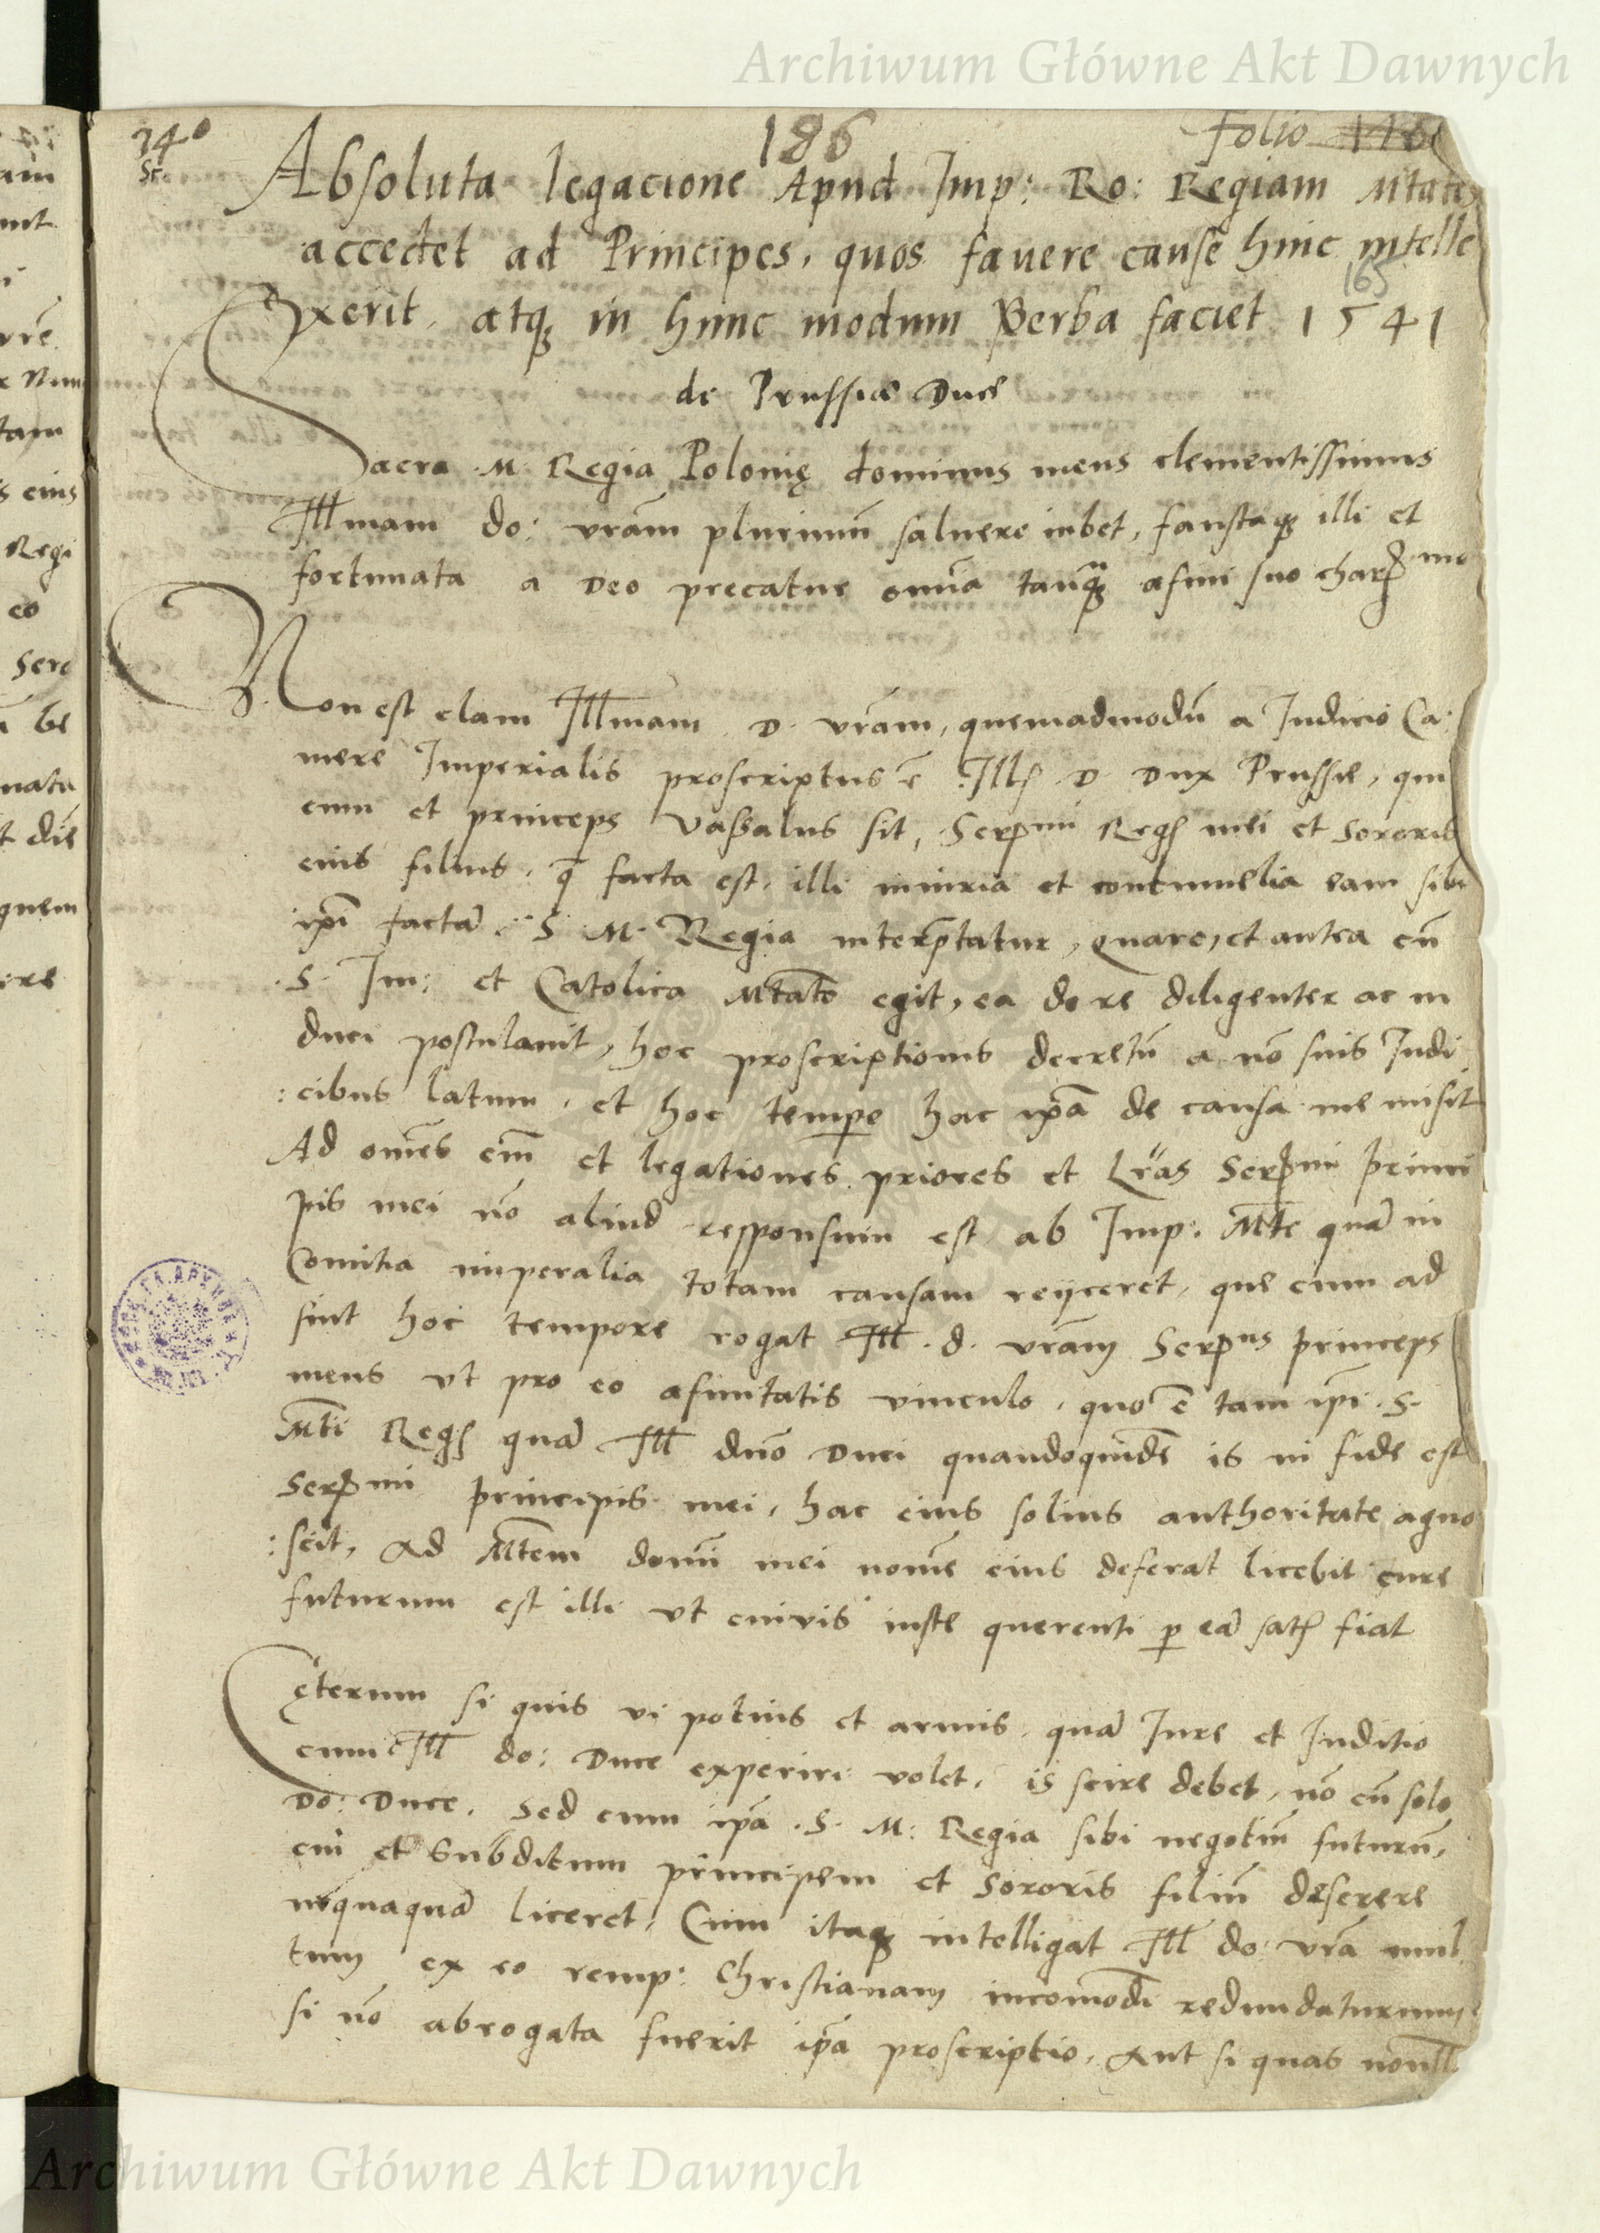 Archiwum Główne Akt Dawnych
186
Folio 116
Absoluta legacione Apud Imp: Ro: Regiam Mtatē
accedet ad Principes, quos favere cause huic intelle
165
xerit, atq; in hunc modum Verba faciet 1541
de Prussiæ Duce
Sacra M. Regia Polonię dominus meus clementissimus
Illmam do: vrām plurimū salvere iubet, faustaq; illi et
fortunata a Deo precatur omīa tanq; afini suo char mo
Non est clam Illmam D. vrām, quemadmodū a Iudicio Ca:
mere Imperialis proscriptus ē Ills D Dux Prussie, qui
cum et princeps Vassalus sit, Sermi Regs mei et Sororis
eius filius, q̄ facta est, illi iniuria et contumelia eam sibi
ipī factā S. M. Regia interptatur, quare, et antea cū
S. Im: et Catolica Mtatē egit, ea de re diligenter ac in
duci postulavit, hoc proscriptionis decretū a nō suis Iudi
:cibus latum, et hoc tempe hac ipā de causa me misit
Ad omēs em̄ et legationes priores et Lrās Sermi princi
pis mei nō aliud responsum est ab Imp: Mte quā in
Comitia imperalia totam causam reijceret, que cum ad
sint hoc tempore rogat Ill. d. vrām Serpus princeps
meus vt pro eo afinitatis vinculo, quo ē tam ipī S.
Mti Regs quā Ill dnō Duci quandoquidē is in fide est
Sermi principis mei, hac eius solius authoritate agno
:scit, ad Mtem domī mei nomē eius deferat licebit
futurum est illi vt cuivis iuste querenti p eā satis fiat
Cęterum si quis vi potius et armis quā Iure et Iuditio
cum Ill do: Duce experiri volet, is scire debet, nō cū solo
Do: Duce, Sed cum ipā S. M: Regia sibi negotiū futurū,
cui et Subditum principem et Sororis filiū deserere
nequaquā liceret, Cum itaq; intelligat Ill do: vrā mul
tum ex eo remp: Christianam incomodi redundaturum
si nō abrogata fuerit ipā proscriptio, Aut si quas nonll
Archiwum Główne Akt Dawnych